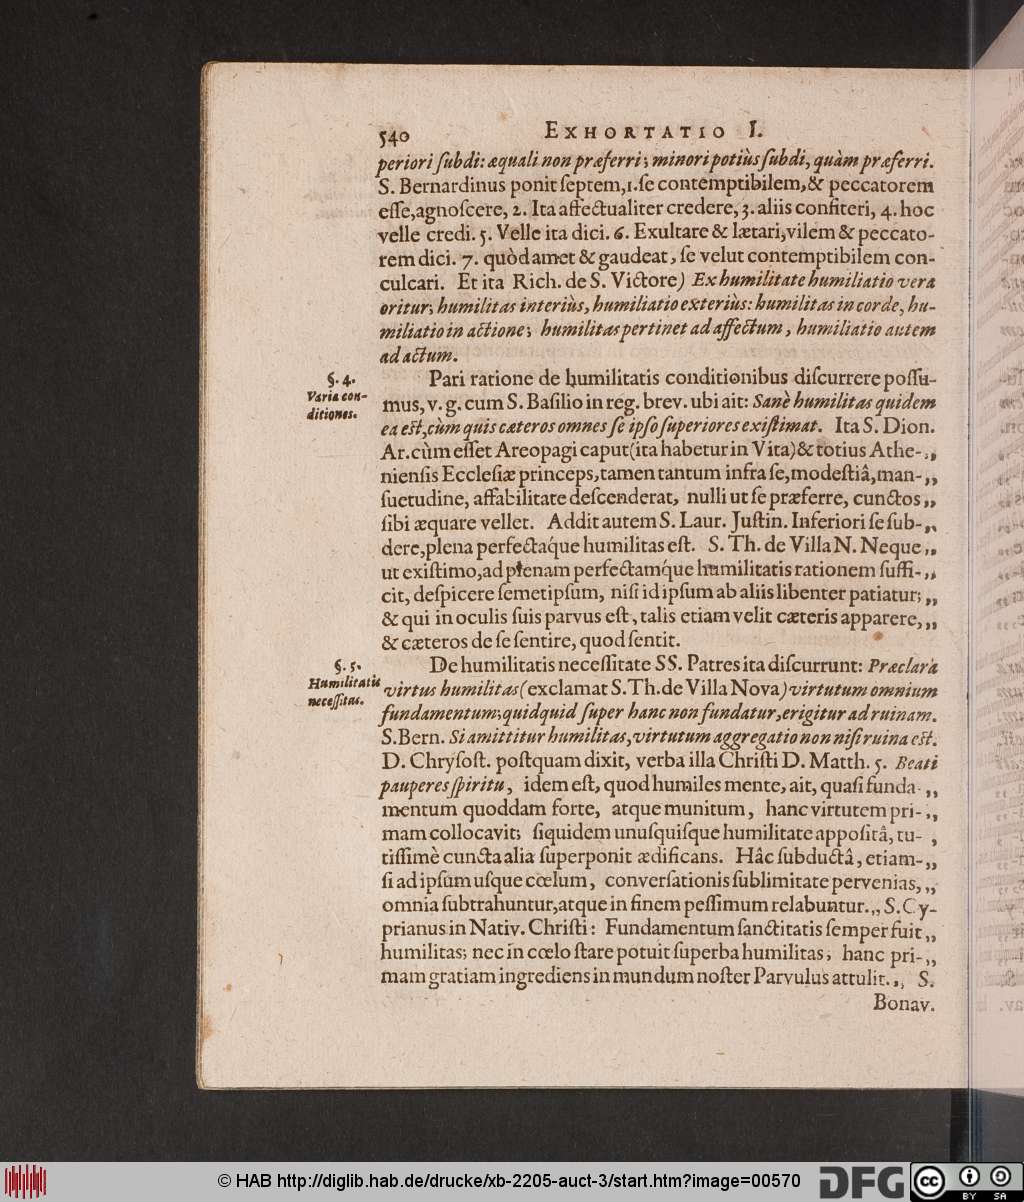 540 EXHORTATIO I.
periori ſubdi: æquali non præferri; minori potiùs ſubdi, quàm præferri.
S. Bernardinus ponit ſeptem, 1. ſe contemptibilem, & peccatorem
eſſe, agnoſcere, 2. Ita affectualiter credere, 3. aliis confiteri, 4. hoc
velle credi. 5. Velle ita dici. 6. Exultare & lætari, vilem & peccato-
rem dici. 7. quòd amet & gaudeat, ſe velut contemptibilem con-
culcari. Et ita Rich. de S. Victore) Ex humilitate humiliatio vera
oritur; humilitas interiùs, humiliatio exteriùs: humilitas in corde, hu-
miliatio in actione; humilitas pertinet ad affectum, humiliatio autem
ad actum.
§. 4.
Varia con-
ditiones.
Pari ratione de humilitatis conditionibus diſcurrere poſſu-
mus, v. g. cum S. Baſilio in reg. brev. ubi ait: Sanè humilitas quidem
ea eſt, cùm quis cæteros omnes ſe ipſo ſuperiores exiſtimat. Ita S. Dion.
Ar. cùm eſſet Areopagi caput (ita habetur in Vita) & totius Athe-,,
nienſis Eccleſiæ princeps, tamen tantum infra ſe, modeſtiâ, man-,,
ſuetudine, affabilitate deſcenderat, nulli ut ſe præferre, cunctos,,
ſibi æquare vellet. Addit autem S. Laur. Juſtin. Inferiori ſe ſub-,,
dere, plena perfectaq́ue humilitas eſt. S. Th. de Villa N. Neque,,
ut exiſtimo, ad plenam perfectamq́ue humilitatis rationem ſuffi-,,
cit, deſpicere ſemetipſum, niſi id ipſum ab aliis libenter patiatur;,,
& qui in oculis ſuis parvus eſt, talis etiam velit cæteris apparere,,,
& cæteros de ſe ſentire, quod ſentit.
§. 5.
Humilitatis
neceſſitas.
De humilitatis neceſſitate SS. Patres ita diſcurrunt: Præclara
virtus humilitas (exclamat S. Th. de Villa Nova) virtutum omnium
fundamentum; quidquid ſuper hanc non fundatur, erigitur ad ruinam.
S. Bern. Si amittitur humilitas, virtutum aggregatio non niſi ruina eſt.
D. Chryſoſt. poſtquam dixit, verba illa Chriſti D. Matth. 5. Beati
pauperes ſpiritu, idem eſt, quod humiles mente, ait, quaſi funda-,,
mentum quoddam forte, atque munitum, hanc virtutem pri-,,
mam collocavit; ſiquidem unuſquiſque humilitate appoſitâ, tu-,
tiſſimè cuncta alia ſuperponit ædificans. Hâc ſubductâ, etiam-,,
ſi ad ipſum uſque cœlum, converſationis ſublimitate pervenias,,,
omnia ſubtrahuntur, atque in finem peſſimum relabuntur.,, S. Cy-
prianus in Nativ. Chriſti: Fundamentum ſanctitatis ſemper fuit,,
humilitas; nec in cœlo ſtare potuit ſuperba humilitas, hanc pri-,,
mam gratiam ingrediens in mundum noſter Parvulus attulit.,, S.
Bonav.
© HAB http://diglib.hab.de/drucke/xb-2205-auct-3/start.htm?image=00570
DFG
cc BY SA